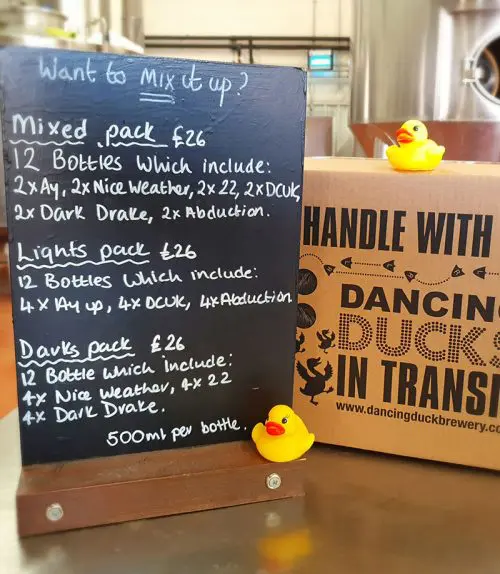 Want to Mix it up?
Mixed pack £26
12 Bottles which include:
2x Ay, 2x Nice Weather, 2x 22, 2x DCUK,
2x Dark Drake, 2x Abduction.
Lights pack £26
12 Bottles which include:
4x Ay up, 4x DCUK, 4x Abduction
Darks pack £26
12 Bottle which include:
4x Nice Weather, 4x 22
4x Dark Drake.
500ml per bottle.
HANDLE WITH
DANCING
DUCKS
IN TRANSI
www.dancingduckbrewery.co